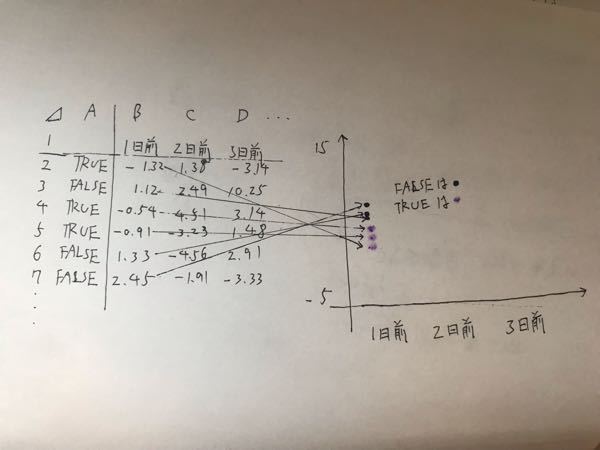 ⊿ A B C D ...
1 1日前 2日前 3日前
2 TRUE -1.32 1.38 -3.14
3 FALSE 1.12 2.49 10.25
4 TRUE -0.54 4.51 3.14
5 TRUE -0.91 -3.23 1.48
6 FALSE 1.33 -4.56 2.91
7 FALSE 2.45 -1.91 -3.33
15
FALSEは
TRUEは
-5
1日前 2日前 3日前